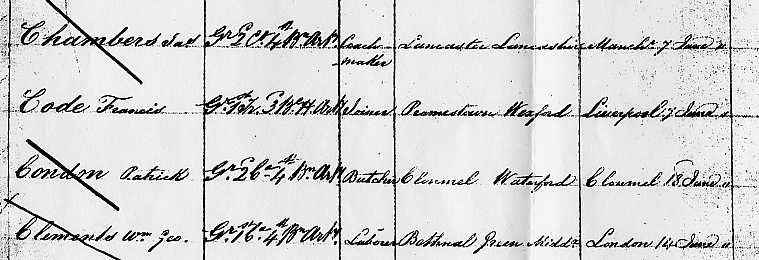 Chambers Jas Gr 20th 4 Bn Arty Coach- Lancaster Lancashire Manchr 7 June "
maker
Code Francis Gr 1 Tr 3 Br H Arty Joiner Wexford Liverpool 7 June "
Condon Patrick Gr 2 Co 4th Bn Arty Butcher Clonmel Waterford Clonmel 18 June "
Clements Wm Geo. Gr 1 Co 4th Bn Arty Labourer Bethnal Green Middx London 14 June "